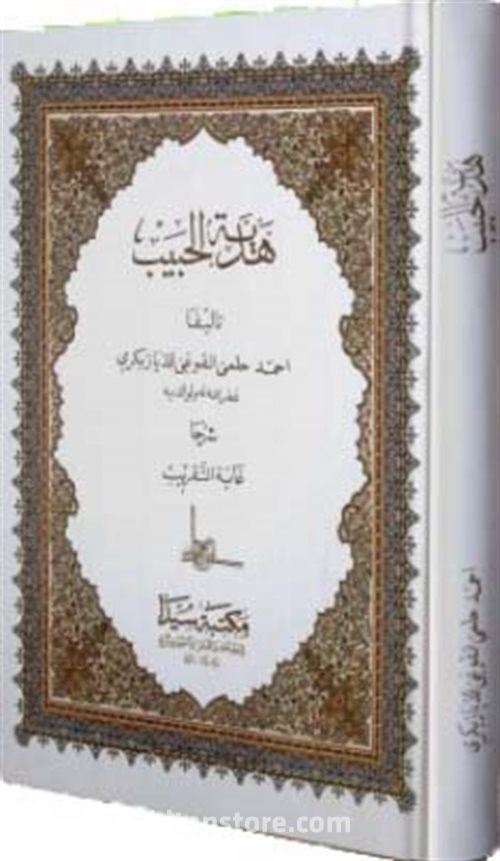 هدية الحبيب
تأليف
احمد حلمي القوغي الديار بكري
غفر الله له ولوالديه
شرح
غاية التقريب
مكتبة سيدا
هدية الحبيب
احمد حلمي القوغي الديار بكري
store.com